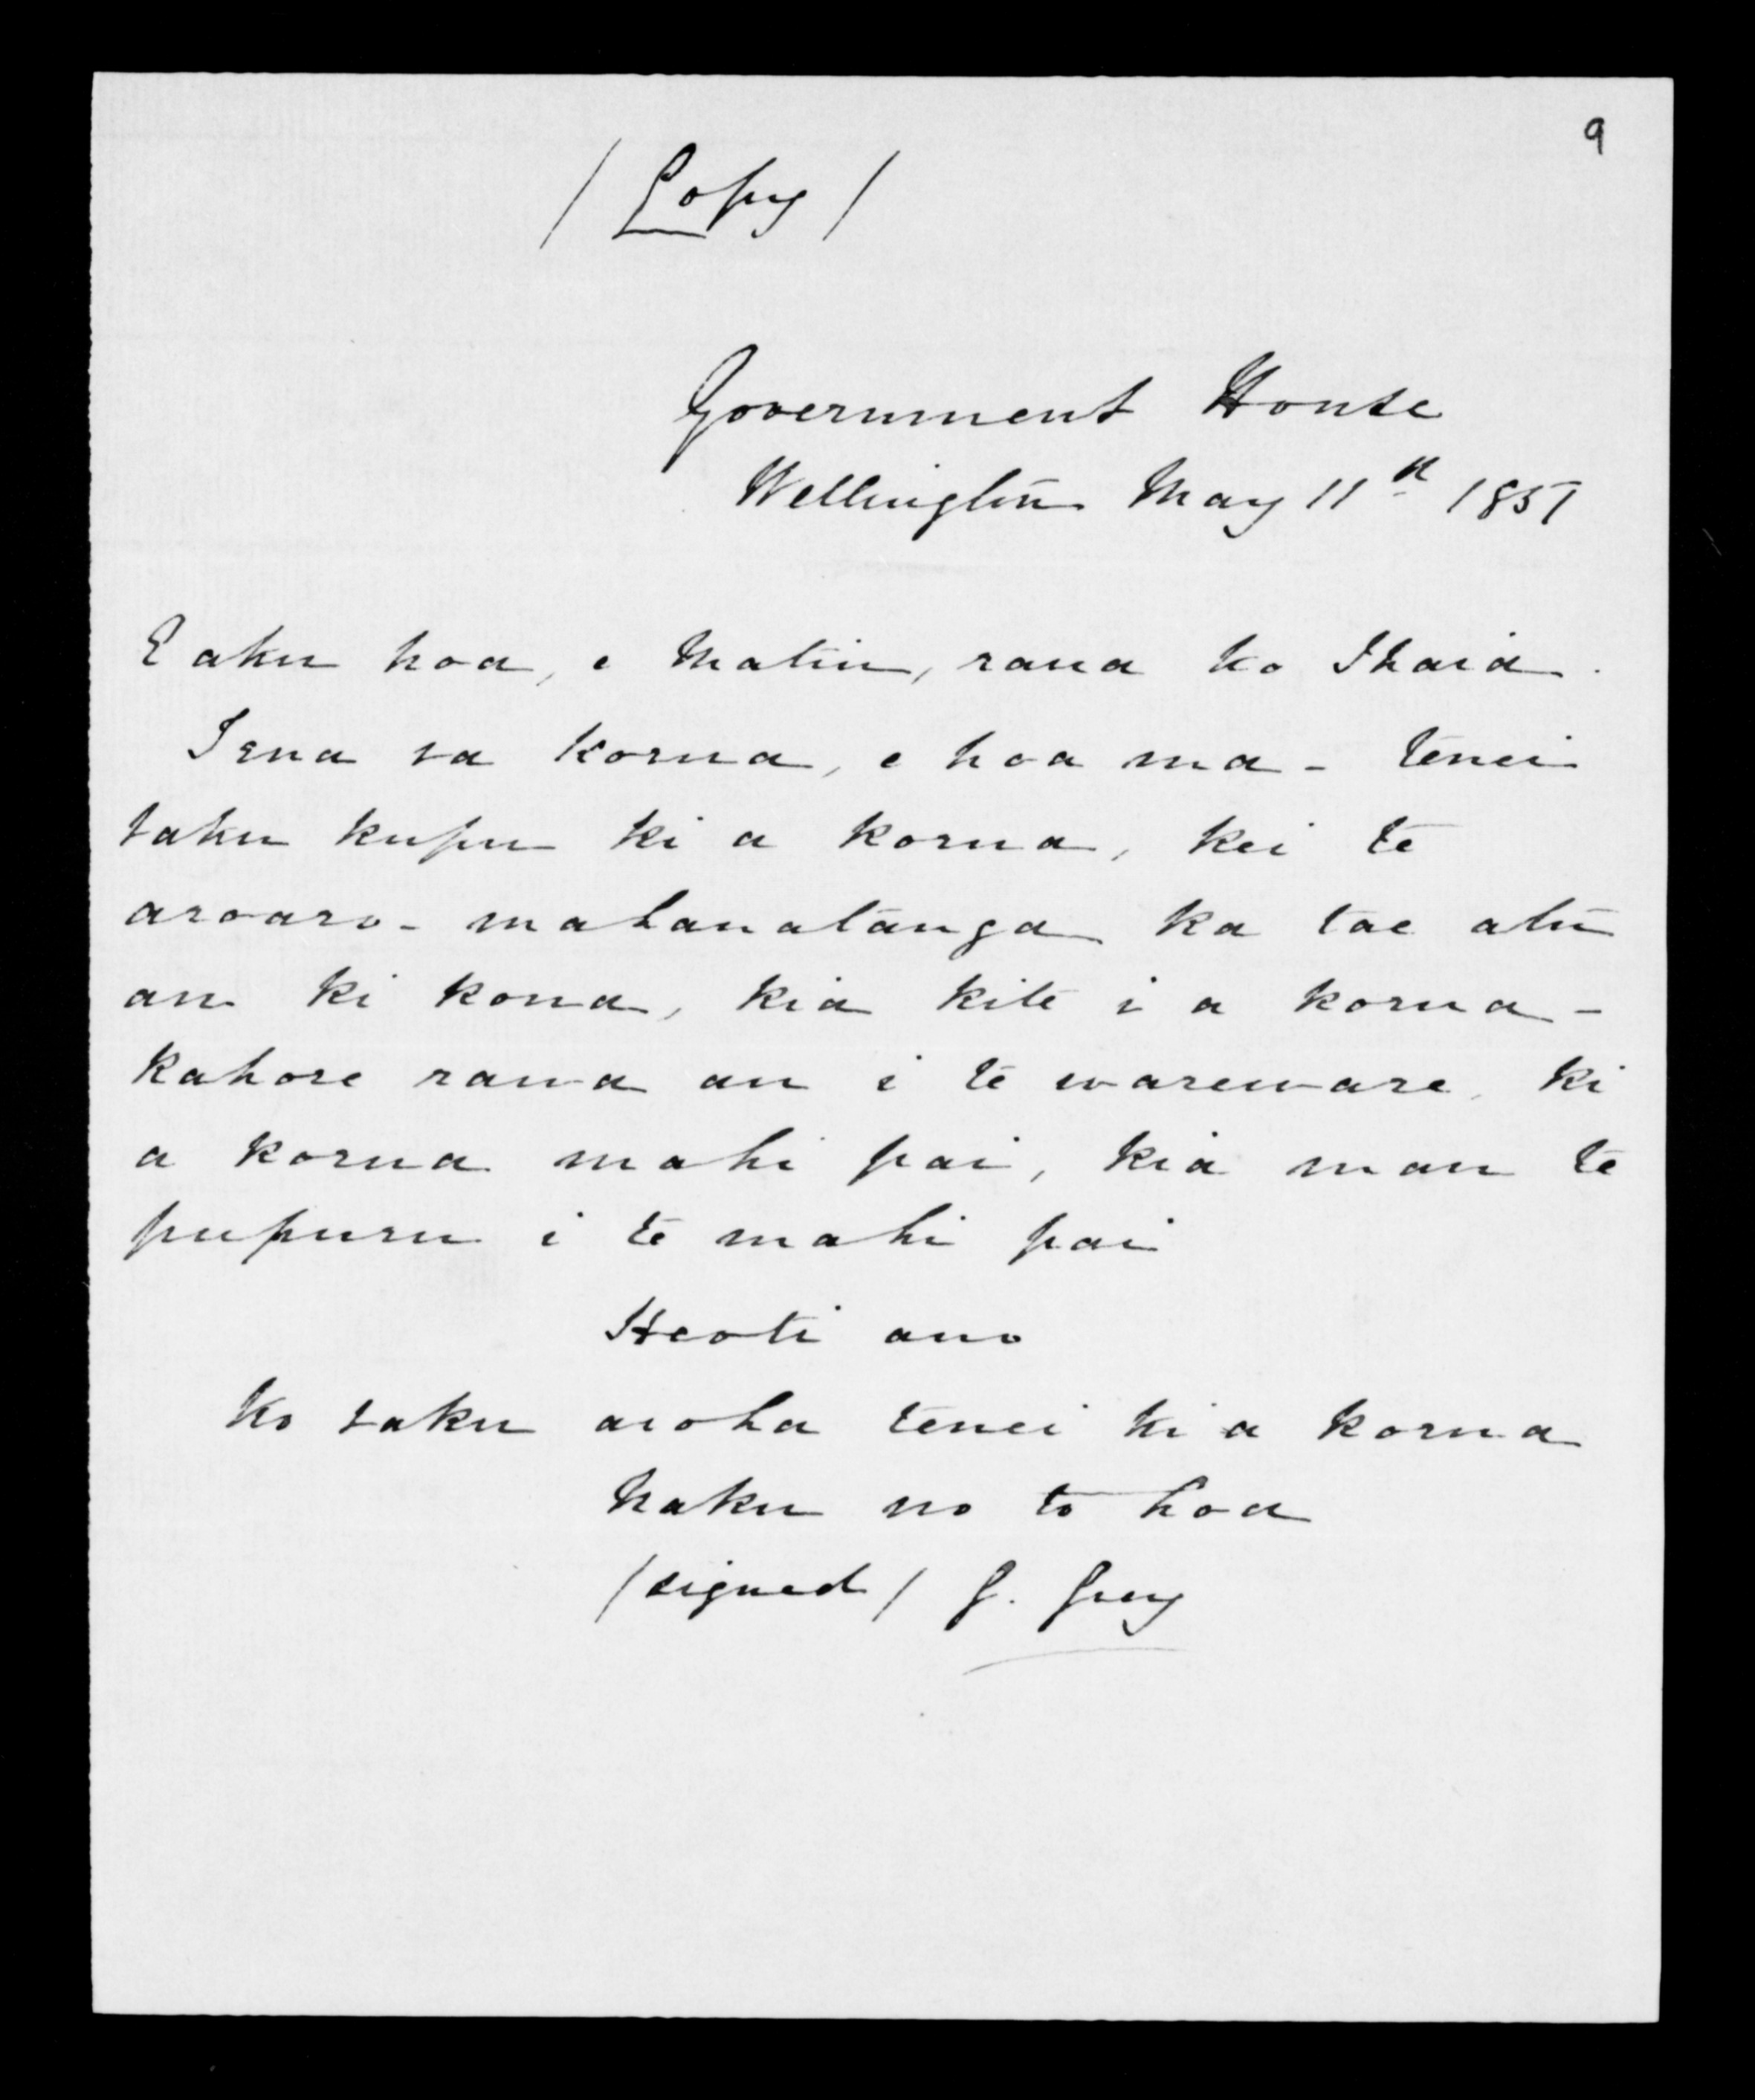 9
/ Copy /
Government House
Wellington May 11th 1851
E aku hoa, e Matiu, raua ko Ihaia.
Tena ra korua, e hoa ma - tenei
taku kupu ki a korua, kei te
aroaro-mahanatanga ka tae atu
au ki kona, kia kite i a korua -
kahore rawa au i te wareware, ki
a korua mahi pai, kia mau te
pupuru i te mahi pai
Heoti ano
Ko taku aroha tenei ki a korua
Naku no to hoa
/signed/ G. Grey